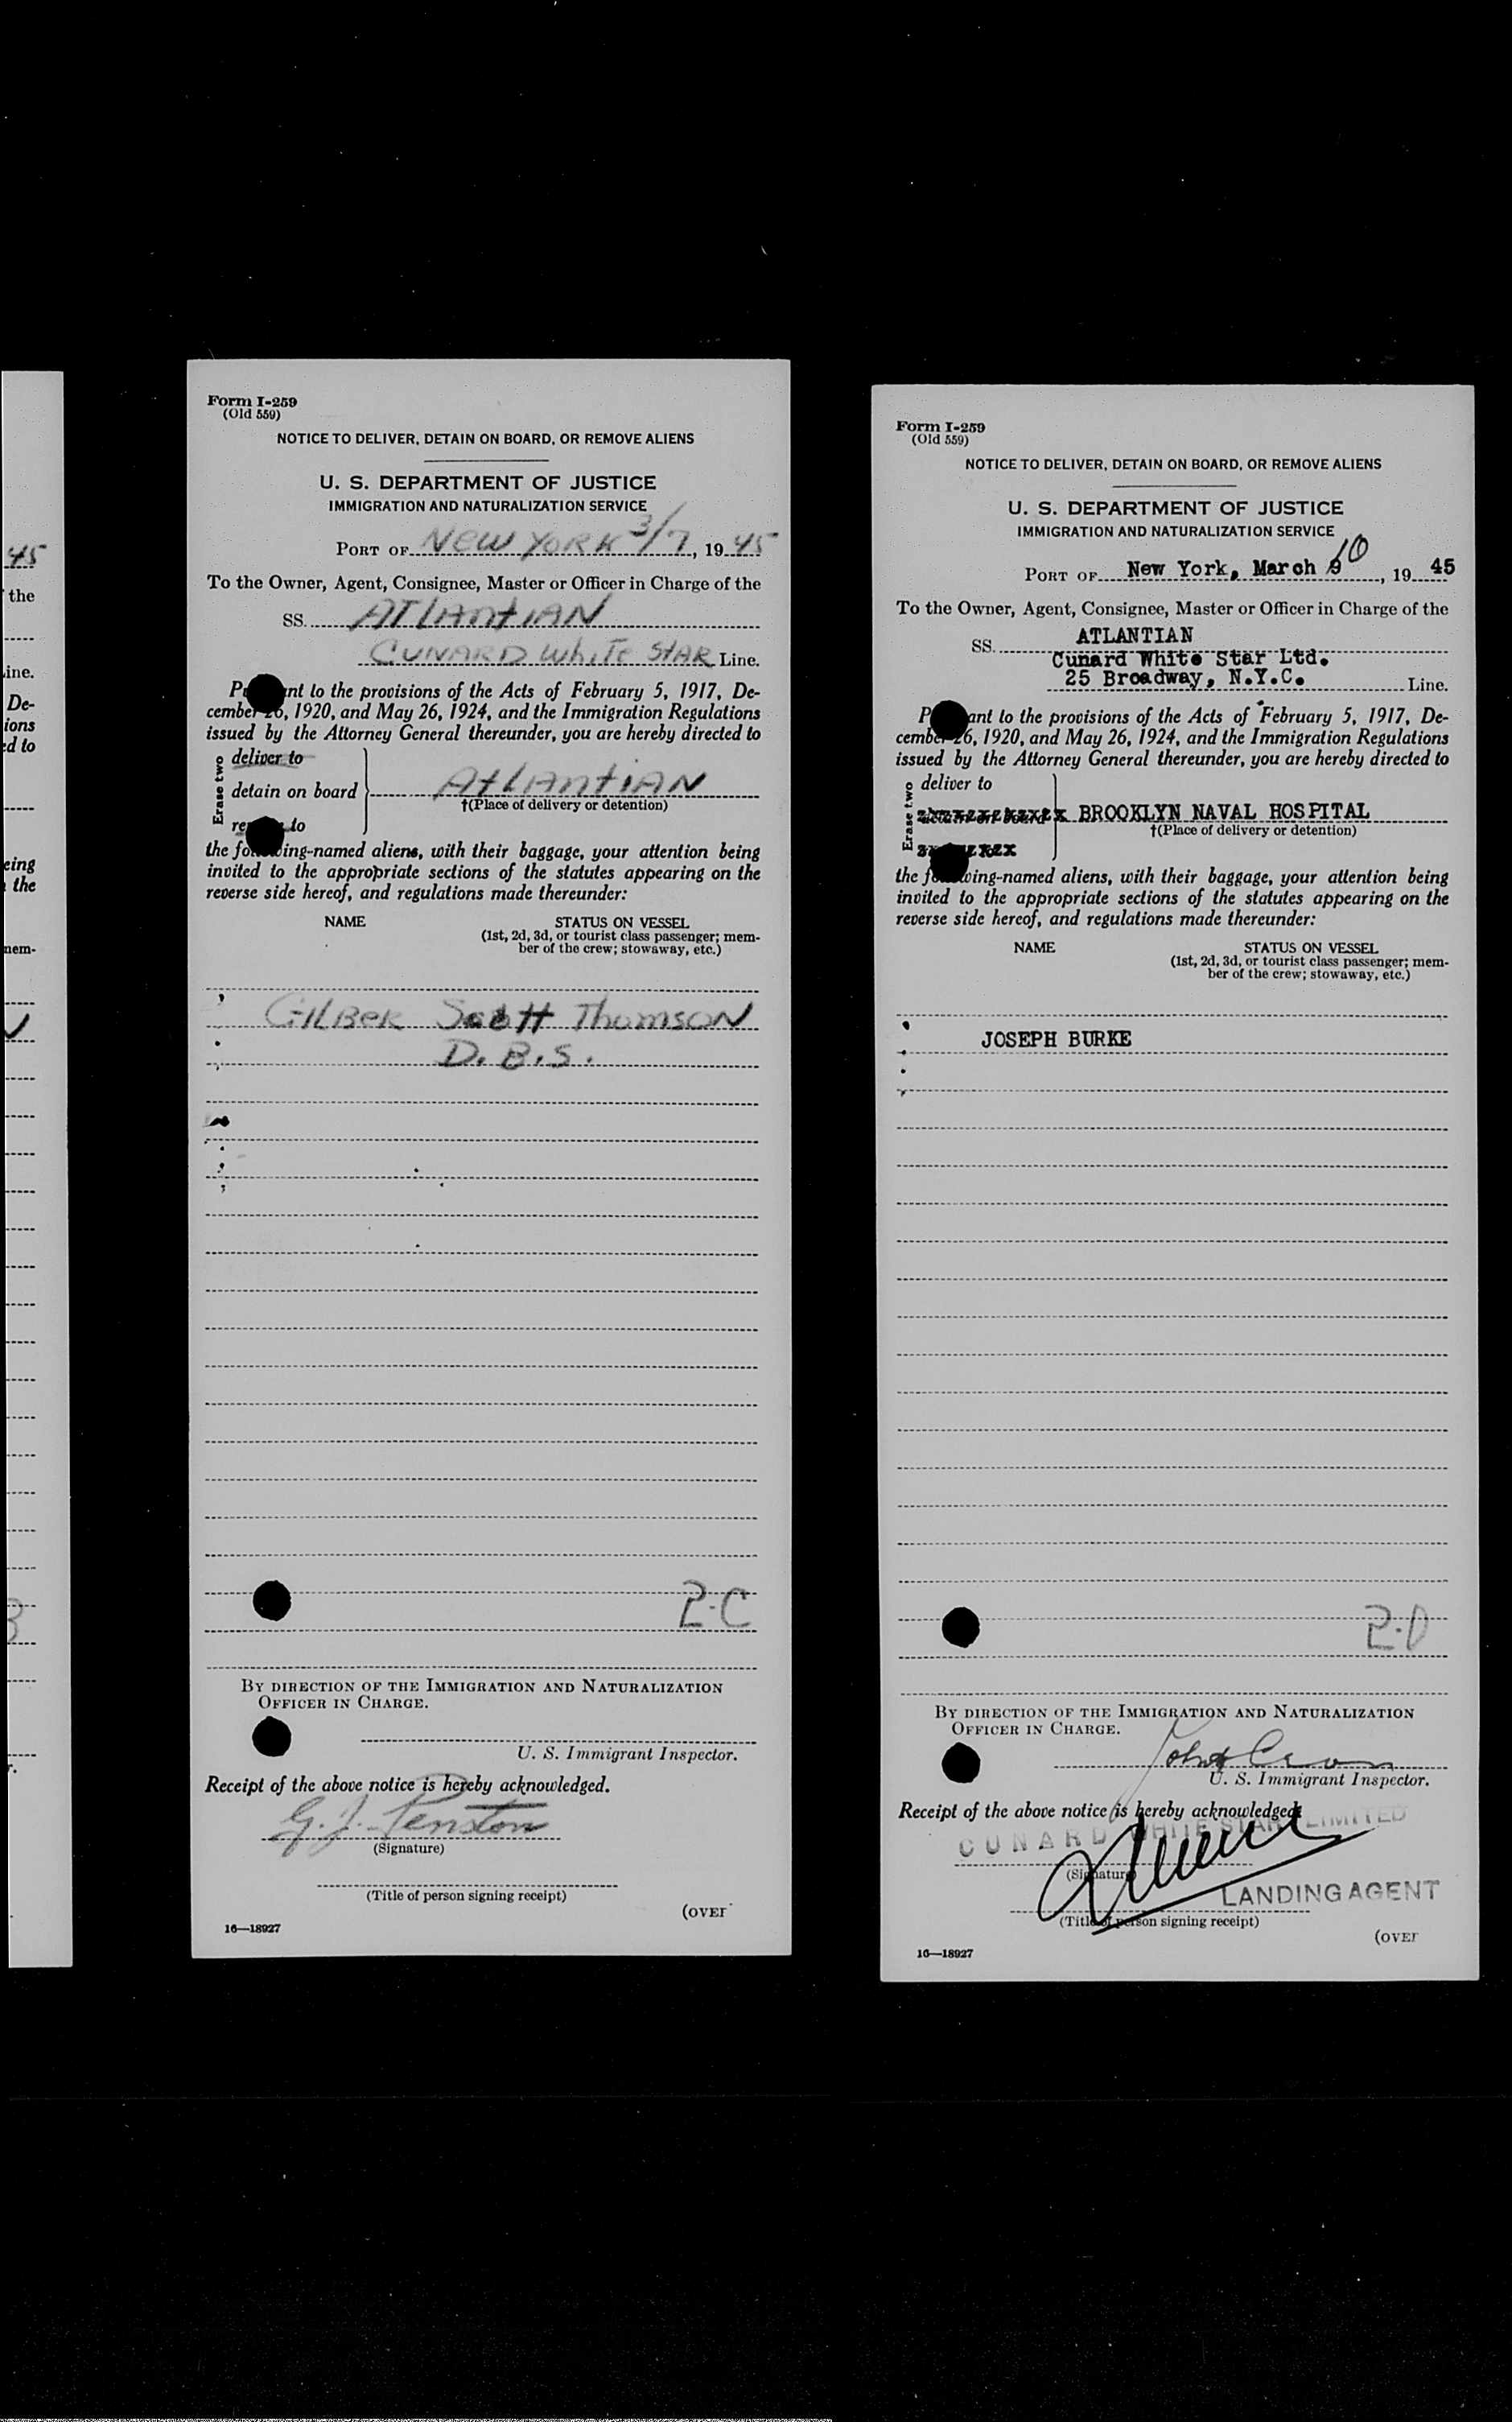 45
the
ine.
De-
ions
ed to
eing
the
nem-
Form I-259
(Old 559)
NOTICE TO DELIVER, DETAIN ON BOARD, OR REMOVE ALIENS
U. S. DEPARTMENT OF JUSTICE
IMMIGRATION AND NATURALIZATION SERVICE
PORT OF NEW YORK 3/7, 19 45
To the Owner, Agent, Consignee, Master or Officer in Charge of the
SS. ATLANTIAN
CUNARD WHITE STAR Line.
P nt to the provisions of the Acts of February 5, 1917, De-
cember 26, 1920, and May 26, 1924, and the Immigration Regulations
issued by the Attorney General thereunder, you are hereby directed to
Erase two
deliver to
detain on board
re to
ATLANTIAN
†(Place of delivery or detention)
the following-named aliens, with their baggage, your attention being
invited to the appropriate sections of the statutes appearing on the
reverse side hereof, and regulations made thereunder:
NAME STATUS ON VESSEL
(1st, 2d, 3d, or tourist class passenger; mem-
ber of the crew; stowaway, etc.)
GILBER Scott Thomson
D.B.S.
2-C
BY DIRECTION OF THE IMMIGRATION AND NATURALIZATION
OFFICER IN CHARGE.
U. S. Immigrant Inspector.
Receipt of the above notice is hereby acknowledged.
G. J. Penston
(Signature)
(Title of person signing receipt)
(OVER
16—18927
Form I-259
(Old 559)
NOTICE TO DELIVER, DETAIN ON BOARD, OR REMOVE ALIENS
U. S. DEPARTMENT OF JUSTICE
IMMIGRATION AND NATURALIZATION SERVICE
PORT OF New York, March 10, 19 45
To the Owner, Agent, Consignee, Master or Officer in Charge of the
SS. ATLANTIAN
Cunard White Star Ltd.
25 Broadway, N.Y.C. Line.
P ant to the provisions of the Acts of February 5, 1917, De-
cember 26, 1920, and May 26, 1924, and the Immigration Regulations
issued by the Attorney General thereunder, you are hereby directed to
Erase two
deliver to
detain on board
BROOKLYN NAVAL HOSPITAL
†(Place of delivery or detention)
the following-named aliens, with their baggage, your attention being
invited to the appropriate sections of the statutes appearing on the
reverse side hereof, and regulations made thereunder:
NAME STATUS ON VESSEL
(1st, 2d, 3d, or tourist class passenger; mem-
ber of the crew; stowaway, etc.)
JOSEPH BURKE
2-D
BY DIRECTION OF THE IMMIGRATION AND NATURALIZATION
OFFICER IN CHARGE.
John
U. S. Immigrant Inspector.
Receipt of the above notice is hereby acknowledged.
CUNARD WHITE STAR LIMITED
(Signature)
LANDING AGENT
(Title of person signing receipt)
(OVER
16—18927